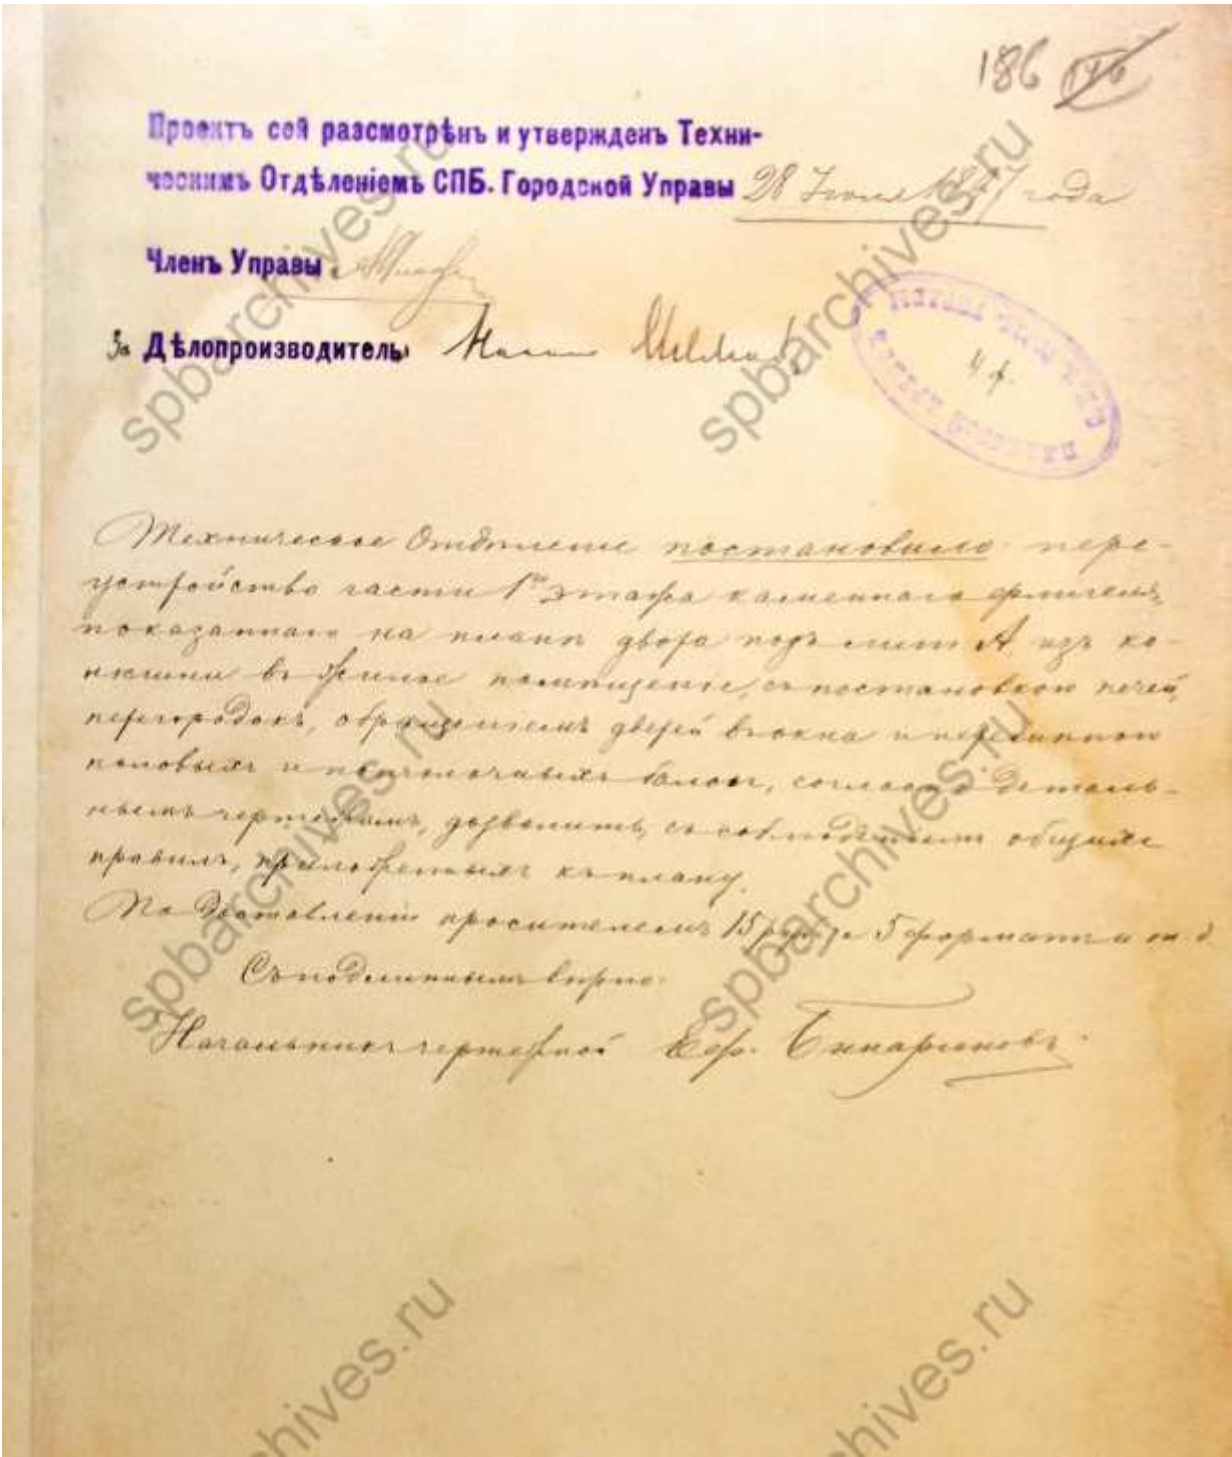 186
Проектъ сей разсмотрѣнъ и утвержденъ Техни-
ческимъ Отдѣленіемъ СПБ. Городской Управы 28 года
Членъ Управы
За Дѣлопроизводитель
4 ф.
Техническое Отдѣленіе постановило: пере-
устройство части 1го этажа каменнаго флигеля,
показаннаго на планѣ двора подъ лит А. изъ ко-
нюшни въ жилое помѣщеніе, съ постановкою печей,
перегородокъ, обращеніемъ дверей въ окна и перемѣною
половыхъ и потолочныхъ балокъ, согласно деталь-
нымъ чертежамъ, дозволить, съ соблюденіемъ общихъ
правилъ, приложенныхъ къ плану.
По доставленіи просителемъ 15 5 и т. д
Съ подлиннымъ вѣрно:
Начальникъ чертежной
spbarchives.ru
spbarchives.ru
spbarchives.ru
spbarchives.ru
chives.ru
chives.ru